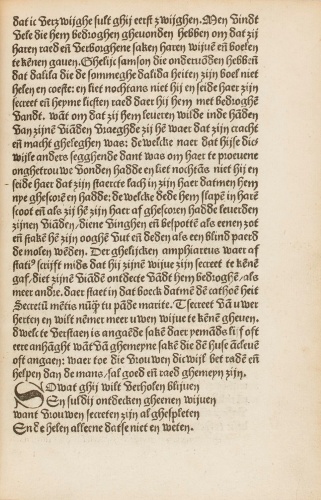 dat ic verzwijghe sult ghij eerst zwijghen. Men vindt
vele die hem bedroghen gheuonden hebben om dat zij
haren raed eñ verborghene saken haren wijuẽ eñ boelen
te kẽnen gauen. Ghelijc samson die onderuõden hebbẽt
dat dalila die de sommeghe dalida heiten zijn boel niet
helen en coeste: en liet nochtans niet hij en seide haer zijn
secreet eñ heyme liesten raed daer hij hem met bedroghẽ
vandt. wãt om dat zij hem leueren wilde inde hãden
van zijnẽ viãden / vraeghde zij hẽ waer dat zijn cracht
eñ macht gheleghen was: dewelcke naer dat hijse dic
wijls anders segghende dant was om haer te proeuene
onghetrouwe vonden hadde en liet nochtãs niet hij en
seide haer dat zijn staercte lach in zijn haer datmen hem
npe ghescorẽ en hadde: dewelcke dede hem slapẽ in harẽ
scoot eñ als zij hẽ zijn haer af ghescoren hadde leuerden
zijnen viãden / diene vinghen eñ bespottẽ als eenen zot
eñ stakẽ hẽ zijn ooghẽ vut eñ deden als een blind paerd
de molen wẽden. Der ghelijcken amphiareus waer af
stati⁹ scrijft mids dat hij zijnẽ wijue zijn secreet te kẽnẽ
gaf / diet zijnẽ viãdẽ ontdecte vãdt hem bedroghẽ / als
meer andre. daer staet in dat boeck datmẽ dẽ cathoẽ heit
Secretũ mẽtis nũq̃ tu pãde marite. T secreet vã uwer
herten en wilt nẽmer meer uwen wijue te kẽnẽ gheuen.
dwelc te verstaen is angaẽde sakẽ daer yemãds lijf oft
eere anhãght wãt vã ghemeyne sakẽ die dẽ huse ãcleuẽ
oft angaen: waer toe die vrouwen dicwijl bet radẽ eñ
helpen dan de mans / sal goed eñ raed ghemeyn zijn.
SO wat ghij wilt verholen blijuen
En suldij ontdecken gheenen wijuen
want vrouwen secreten zijn al ghespleten
En dẽ helen alleene datse niet en weten.